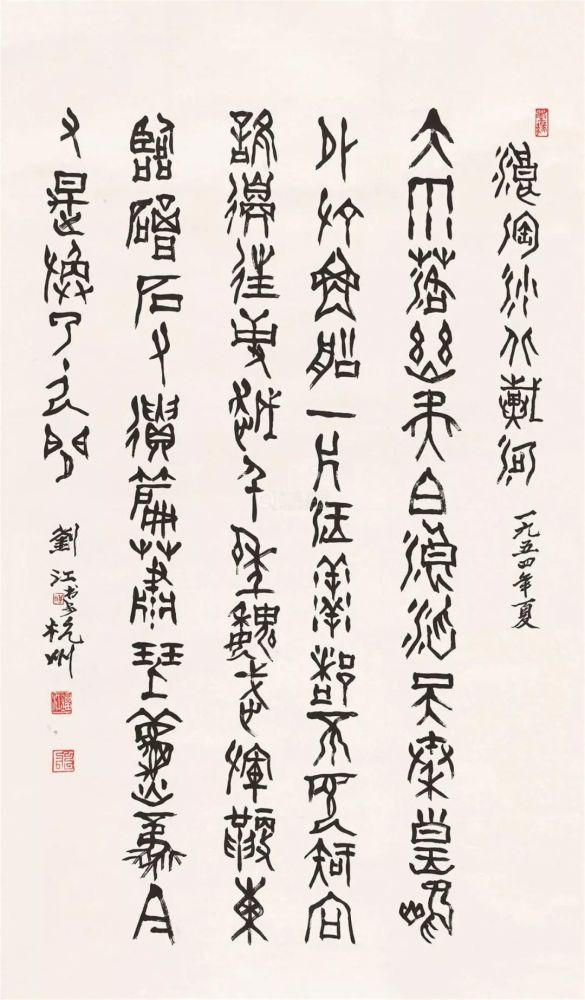 浪淘沙北戴河 一九五四年夏
大雨落幽燕白浪滔天秦皇島
外打魚船一片汪洋都不見知向
誰邊往事越千年魏武揮鞭東
臨碣石有遺篇蕭瑟秋風今
又是換了人間 劉江书于杭州